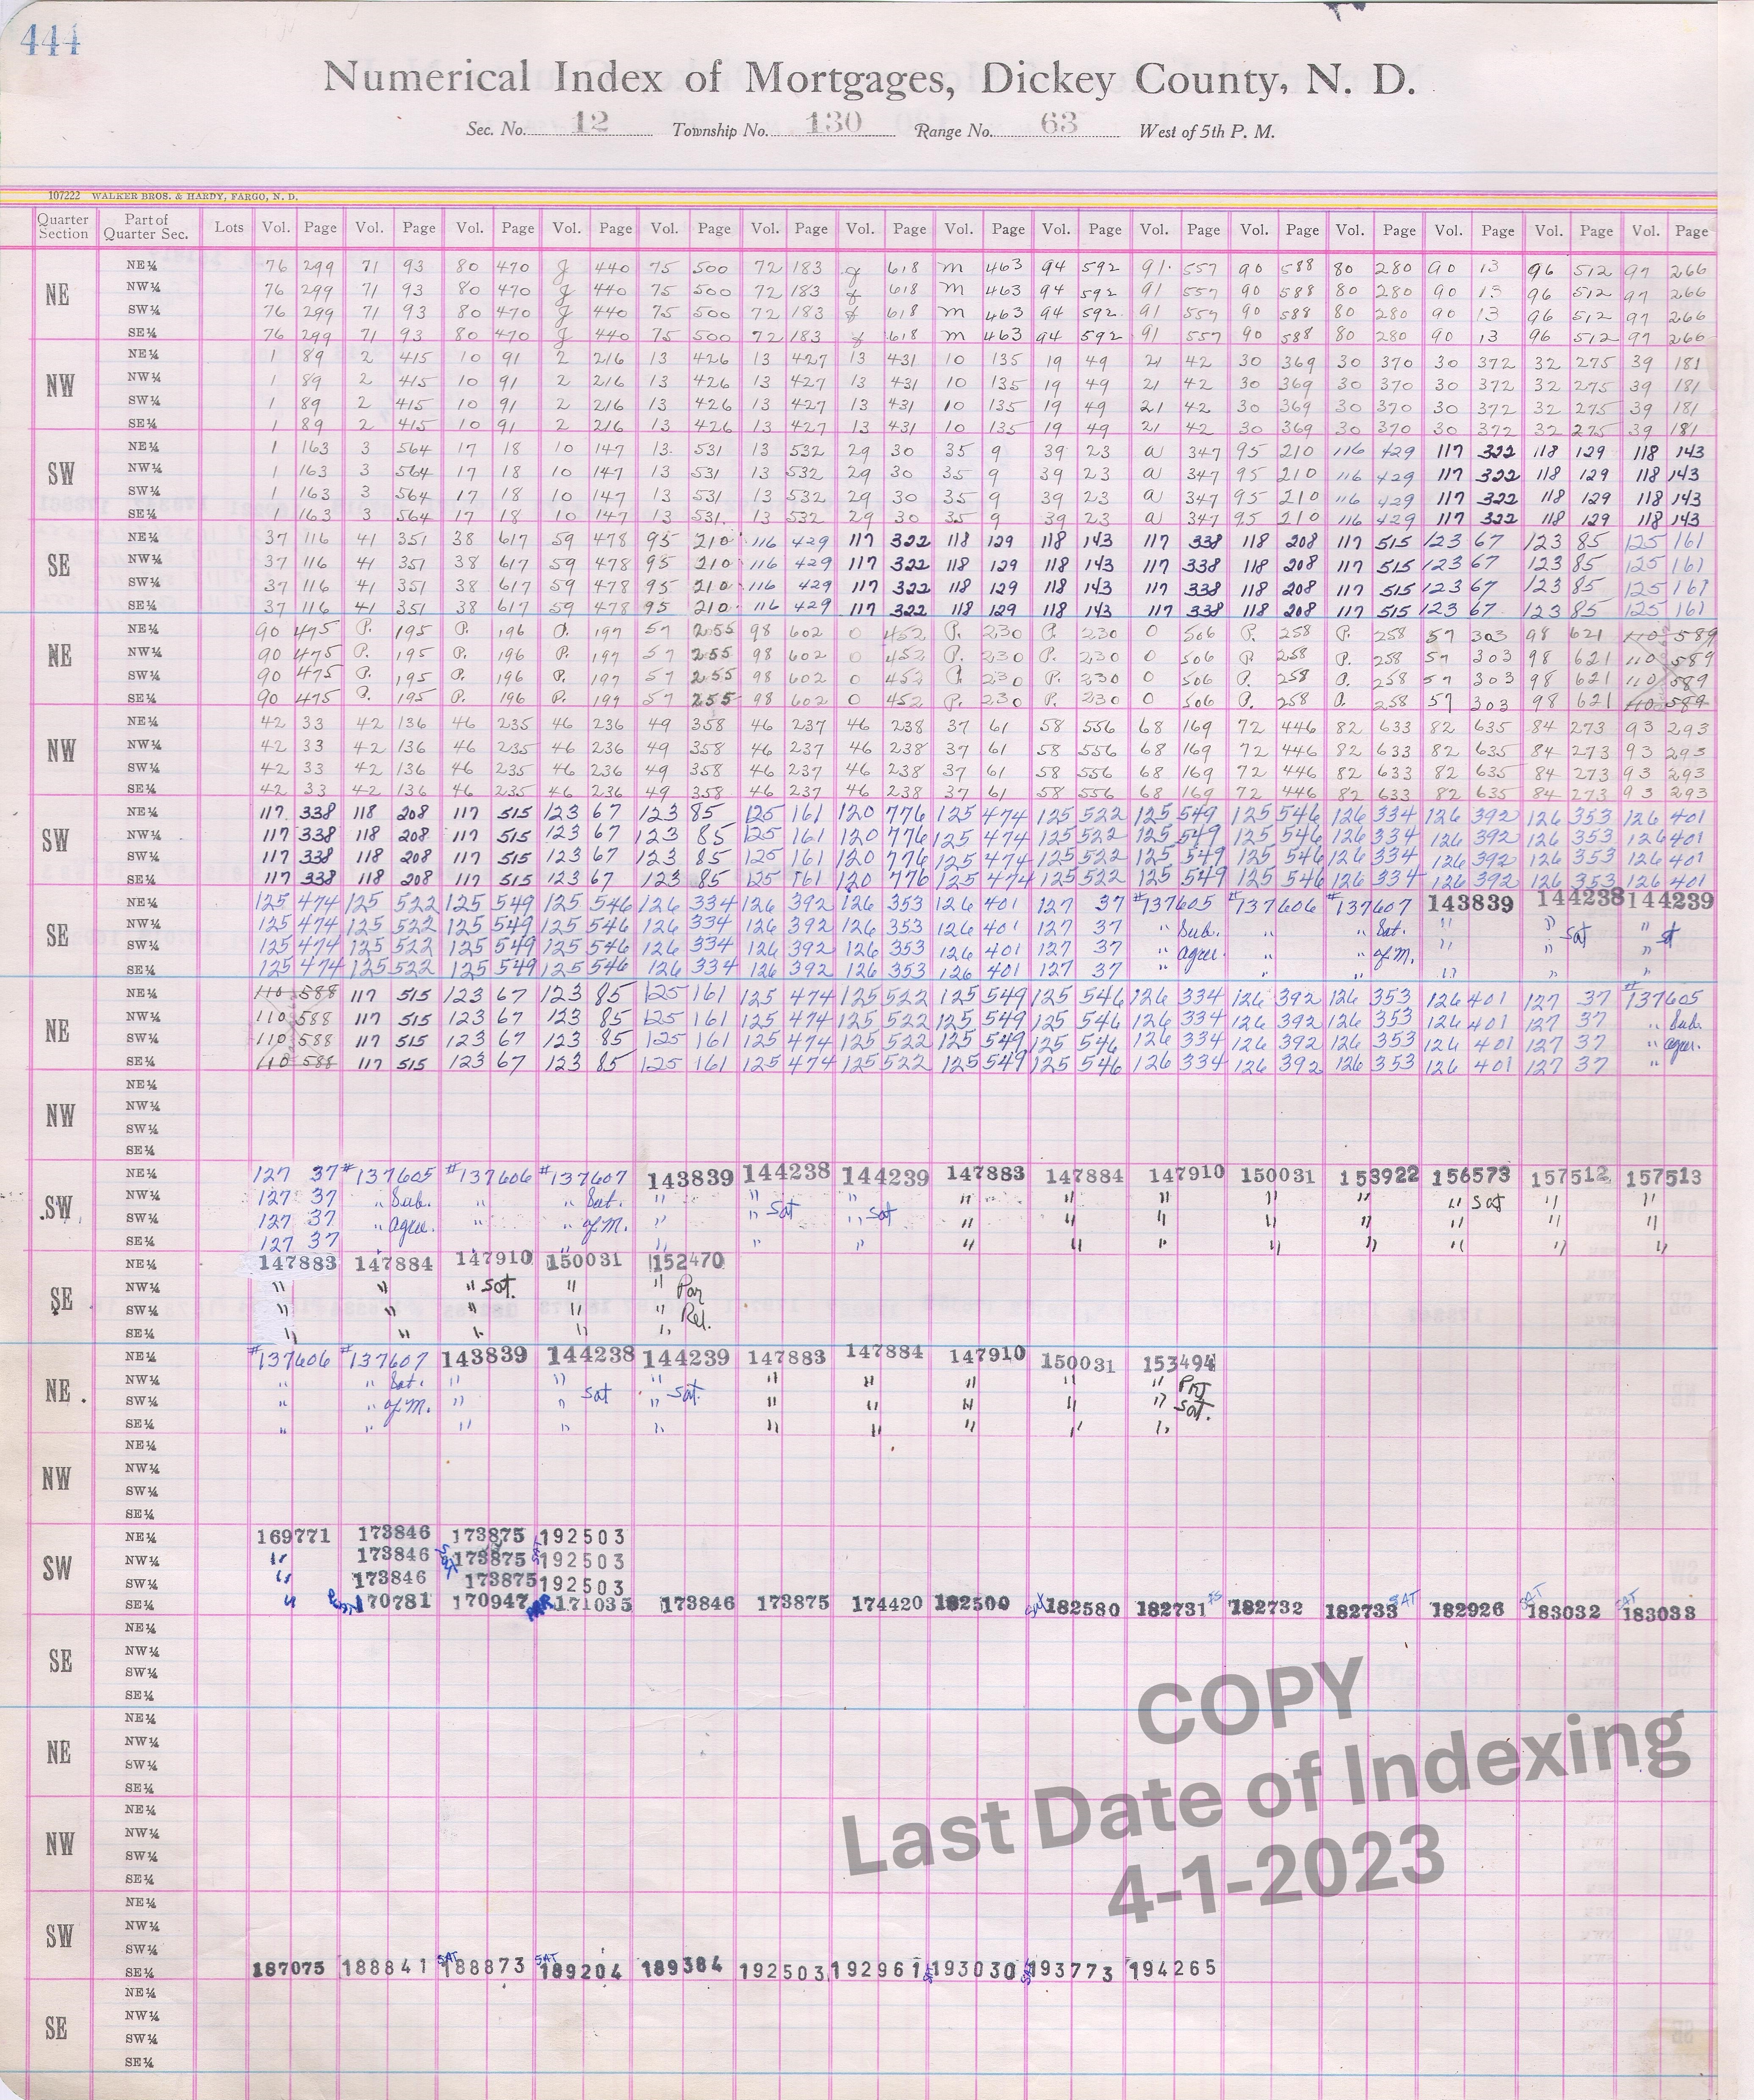 444
Numerical Index of Mortgages, Dickey County, N. D.
Sec. No. 12 Township No. 130 Range No. 63 West of 5th P. M.
107222 WALKER BROS. & HARDY, FARGO, N. D.
Quarter Section Part of Quarter Sec. Lots Vol. Page Vol. Page Vol. Page Vol. Page Vol. Page Vol. Page Vol. Page Vol. Page Vol. Page Vol. Page Vol. Page Vol. Page Vol. Page Vol. Page Vol. Page
NE NE¼ 76 299 71 93 80 470 J 440 75 500 72 183 618 M 463 94 592 91 557 90 588 80 280 90 13 96 512 97 266
NW¼ 76 299 71 93 80 470 J 440 75 500 72 183 618 M 463 94 592 91 557 90 588 80 280 90 13 96 512 97 266
SW¼ 76 299 71 93 80 470 J 440 75 500 72 183 618 M 463 94 592 91 557 90 588 80 280 90 13 96 512 97 266
SE¼ 76 299 71 93 80 470 J 440 75 500 72 183 618 M 463 94 592 91 557 90 588 80 280 90 13 96 512 97 266
NW NE¼ 1 89 2 415 10 91 2 216 13 426 13 427 13 431 10 135 19 49 21 42 30 369 30 370 30 372 32 275 39 181
NW¼ 1 89 2 415 10 91 2 216 13 426 13 427 13 431 10 135 19 49 21 42 30 369 30 370 30 372 32 275 39 181
SW¼ 1 89 2 415 10 91 2 216 13 426 13 427 13 431 10 135 19 49 21 42 30 369 30 370 30 372 32 275 39 181
SE¼ 1 89 2 415 10 91 2 216 13 426 13 427 13 431 10 135 19 49 21 42 30 369 30 370 30 372 32 275 39 181
SW NE¼ 1 163 3 564 17 18 10 147 13 531 13 532 29 30 35 9 39 23 a 347 95 210 116 429 117 322 118 129 118 143
NW¼ 1 163 3 564 17 18 10 147 13 531 13 532 29 30 35 9 39 23 a 347 95 210 116 429 117 322 118 129 118 143
SW¼ 1 163 3 564 17 18 10 147 13 531 13 532 29 30 35 9 39 23 a 347 95 210 116 429 117 322 118 129 118 143
SE¼ 1 163 3 564 17 18 10 147 13 531 13 532 29 30 35 9 39 23 a 347 95 210 116 429 117 322 118 129 118 143
SE NE¼ 37 116 41 351 38 617 59 478 95 210 116 429 117 322 118 129 118 143 117 338 118 208 117 515 123 67 123 85 125 161
NW¼ 37 116 41 351 38 617 59 478 95 210 116 429 117 322 118 129 118 143 117 338 118 208 117 515 123 67 123 85 125 161
SW¼ 37 116 41 351 38 617 59 478 95 210 116 429 117 322 118 129 118 143 117 338 118 208 117 515 123 67 123 85 125 161
SE¼ 37 116 41 351 38 617 59 478 95 210 116 429 117 322 118 129 118 143 117 338 118 208 117 515 123 67 123 85 125 161
NE NE¼ 90 475 P. 195 P. 196 P. 197 57 255 98 602 O 452 P. 230 P. 230 O 506 P. 258 P. 258 57 303 98 621 110 589
NW¼ 90 475 P. 195 P. 196 P. 197 57 255 98 602 O 452 P. 230 P. 230 O 506 P. 258 P. 258 57 303 98 621 110 589
SW¼ 90 475 P. 195 P. 196 P. 197 57 255 98 602 O 452 P. 230 P. 230 O 506 P. 258 P. 258 57 303 98 621 110 589
SE¼ 90 475 P. 195 P. 196 P. 197 57 255 98 602 O 452 P. 230 P. 230 O 506 P. 258 P. 258 57 303 98 621 110 589
NW NE¼ 42 33 42 136 46 235 46 236 49 358 46 237 46 238 37 61 58 556 68 169 72 446 82 633 82 635 84 273 93 293
NW¼ 42 33 42 136 46 235 46 236 49 358 46 237 46 238 37 61 58 556 68 169 72 446 82 633 82 635 84 273 93 293
SW¼ 42 33 42 136 46 235 46 236 49 358 46 237 46 238 37 61 58 556 68 169 72 446 82 633 82 635 84 273 93 293
SE¼ 42 33 42 136 46 235 46 236 49 358 46 237 46 238 37 61 58 556 68 169 72 446 82 633 82 635 84 273 93 293
SW NE¼ 117 338 118 208 117 515 123 67 123 85 125 161 120 776 125 474 125 522 125 549 125 546 126 334 126 392 126 353 126 401
NW¼ 117 338 118 208 117 515 123 67 123 85 125 161 120 776 125 474 125 522 125 549 125 546 126 334 126 392 126 353 126 401
SW¼ 117 338 118 208 117 515 123 67 123 85 125 161 120 776 125 474 125 522 125 549 125 546 126 334 126 392 126 353 126 401
SE¼ 117 338 118 208 117 515 123 67 123 85 125 161 120 776 125 474 125 522 125 549 125 546 126 334 126 392 126 353 126 401
SE NE¼ 125 474 125 522 125 549 125 546 126 334 126 392 126 353 126 401 127 37 #137605 #137606 #137607 143839 144238 144239
NW¼ 125 474 125 522 125 549 125 546 126 334 126 392 126 353 126 401 127 37 " Sub. " " Sat. " " Sat " St
SW¼ 125 474 125 522 125 549 125 546 126 334 126 392 126 353 126 401 127 37 " agree. " " of M. " " "
SE¼ 125 474 125 522 125 549 125 546 126 334 126 392 126 353 126 401 127 37 " " " " " "
NE NE¼ 110 588 117 515 123 67 123 85 125 161 125 474 125 522 125 549 125 546 126 334 126 392 126 353 126 401 127 37 #137605
NW¼ 110 588 117 515 123 67 123 85 125 161 125 474 125 522 125 549 125 546 126 334 126 392 126 353 126 401 127 37 " Sub.
SW¼ 110 588 117 515 123 67 123 85 125 161 125 474 125 522 125 549 125 546 126 334 126 392 126 353 126 401 127 37 " agree.
SE¼ 110 588 117 515 123 67 123 85 125 161 125 474 125 522 125 549 125 546 126 334 126 392 126 353 126 401 127 37 "
NW NE¼
NW¼
SW¼
SE¼
SW NE¼ 127 37 #137605 #137606 #137607 143839 144238 144239 147883 147884 147910 150031 153922 156573 157512 157513
NW¼ 127 37 " Sub. " " Sat. " " " " " " " " " Sat " "
SW¼ 127 37 " agree. " " of M. " " Sat " Sat " " " " " " " "
SE¼ 127 37 " " " " " " " " " " " " " "
SE NE¼ 147883 147884 147910 150031 152470
NW¼ " " " Sat. " " Par
SW¼ " " " " " Rel.
SE¼ " " " " "
NE NE¼ #137606 #137607 143839 144238 144239 147883 147884 147910 150031 153494
NW¼ " " Sat. " " " " " " " " Prt
SW¼ " " of M. " " Sat " Sat. " " " " " Sat.
SE¼ " " " " " " " " " "
NW NE¼
NW¼
SW¼
SE¼
SW NE¼ 169771 173846 173875 192503
NW¼ " 173846 Sat 173875 SAT 192503
SW¼ " 173846 173875 192503
SE¼ " 170781 170947 PAR 171035 173846 173875 174420 182500 182580 182731 182732 182733 SAT 182926 SAT 183032 SAT 183033
SE NE¼
NW¼
SW¼
SE¼
NE NE¼
NW¼
SW¼
SE¼
NW NE¼
NW¼
SW¼
SE¼
SW NE¼
NW¼
SW¼
SE¼ 187075 188841 SAT 188873 SAT 189204 189384 192503 192961 193030 193773 194265
SE NE¼
NW¼
SW¼
SE¼
COPY
Last Date of Indexing
4-1-2023